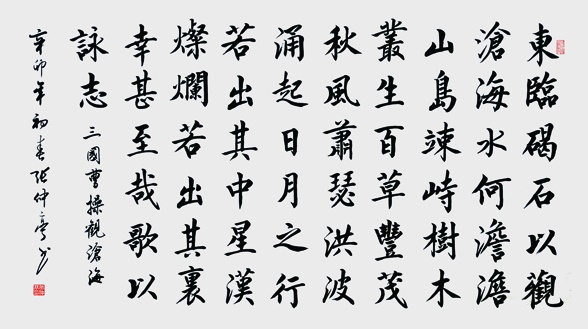 東臨碣石以觀
滄海水何澹澹
山島竦峙樹木
叢生百草豐茂
秋風蕭瑟洪波
涌起日月之行
若出其中星漢
燦爛若出其裏
幸甚至哉歌以
詠志 三國曹操觀滄海
辛卯年初春张仲亭书